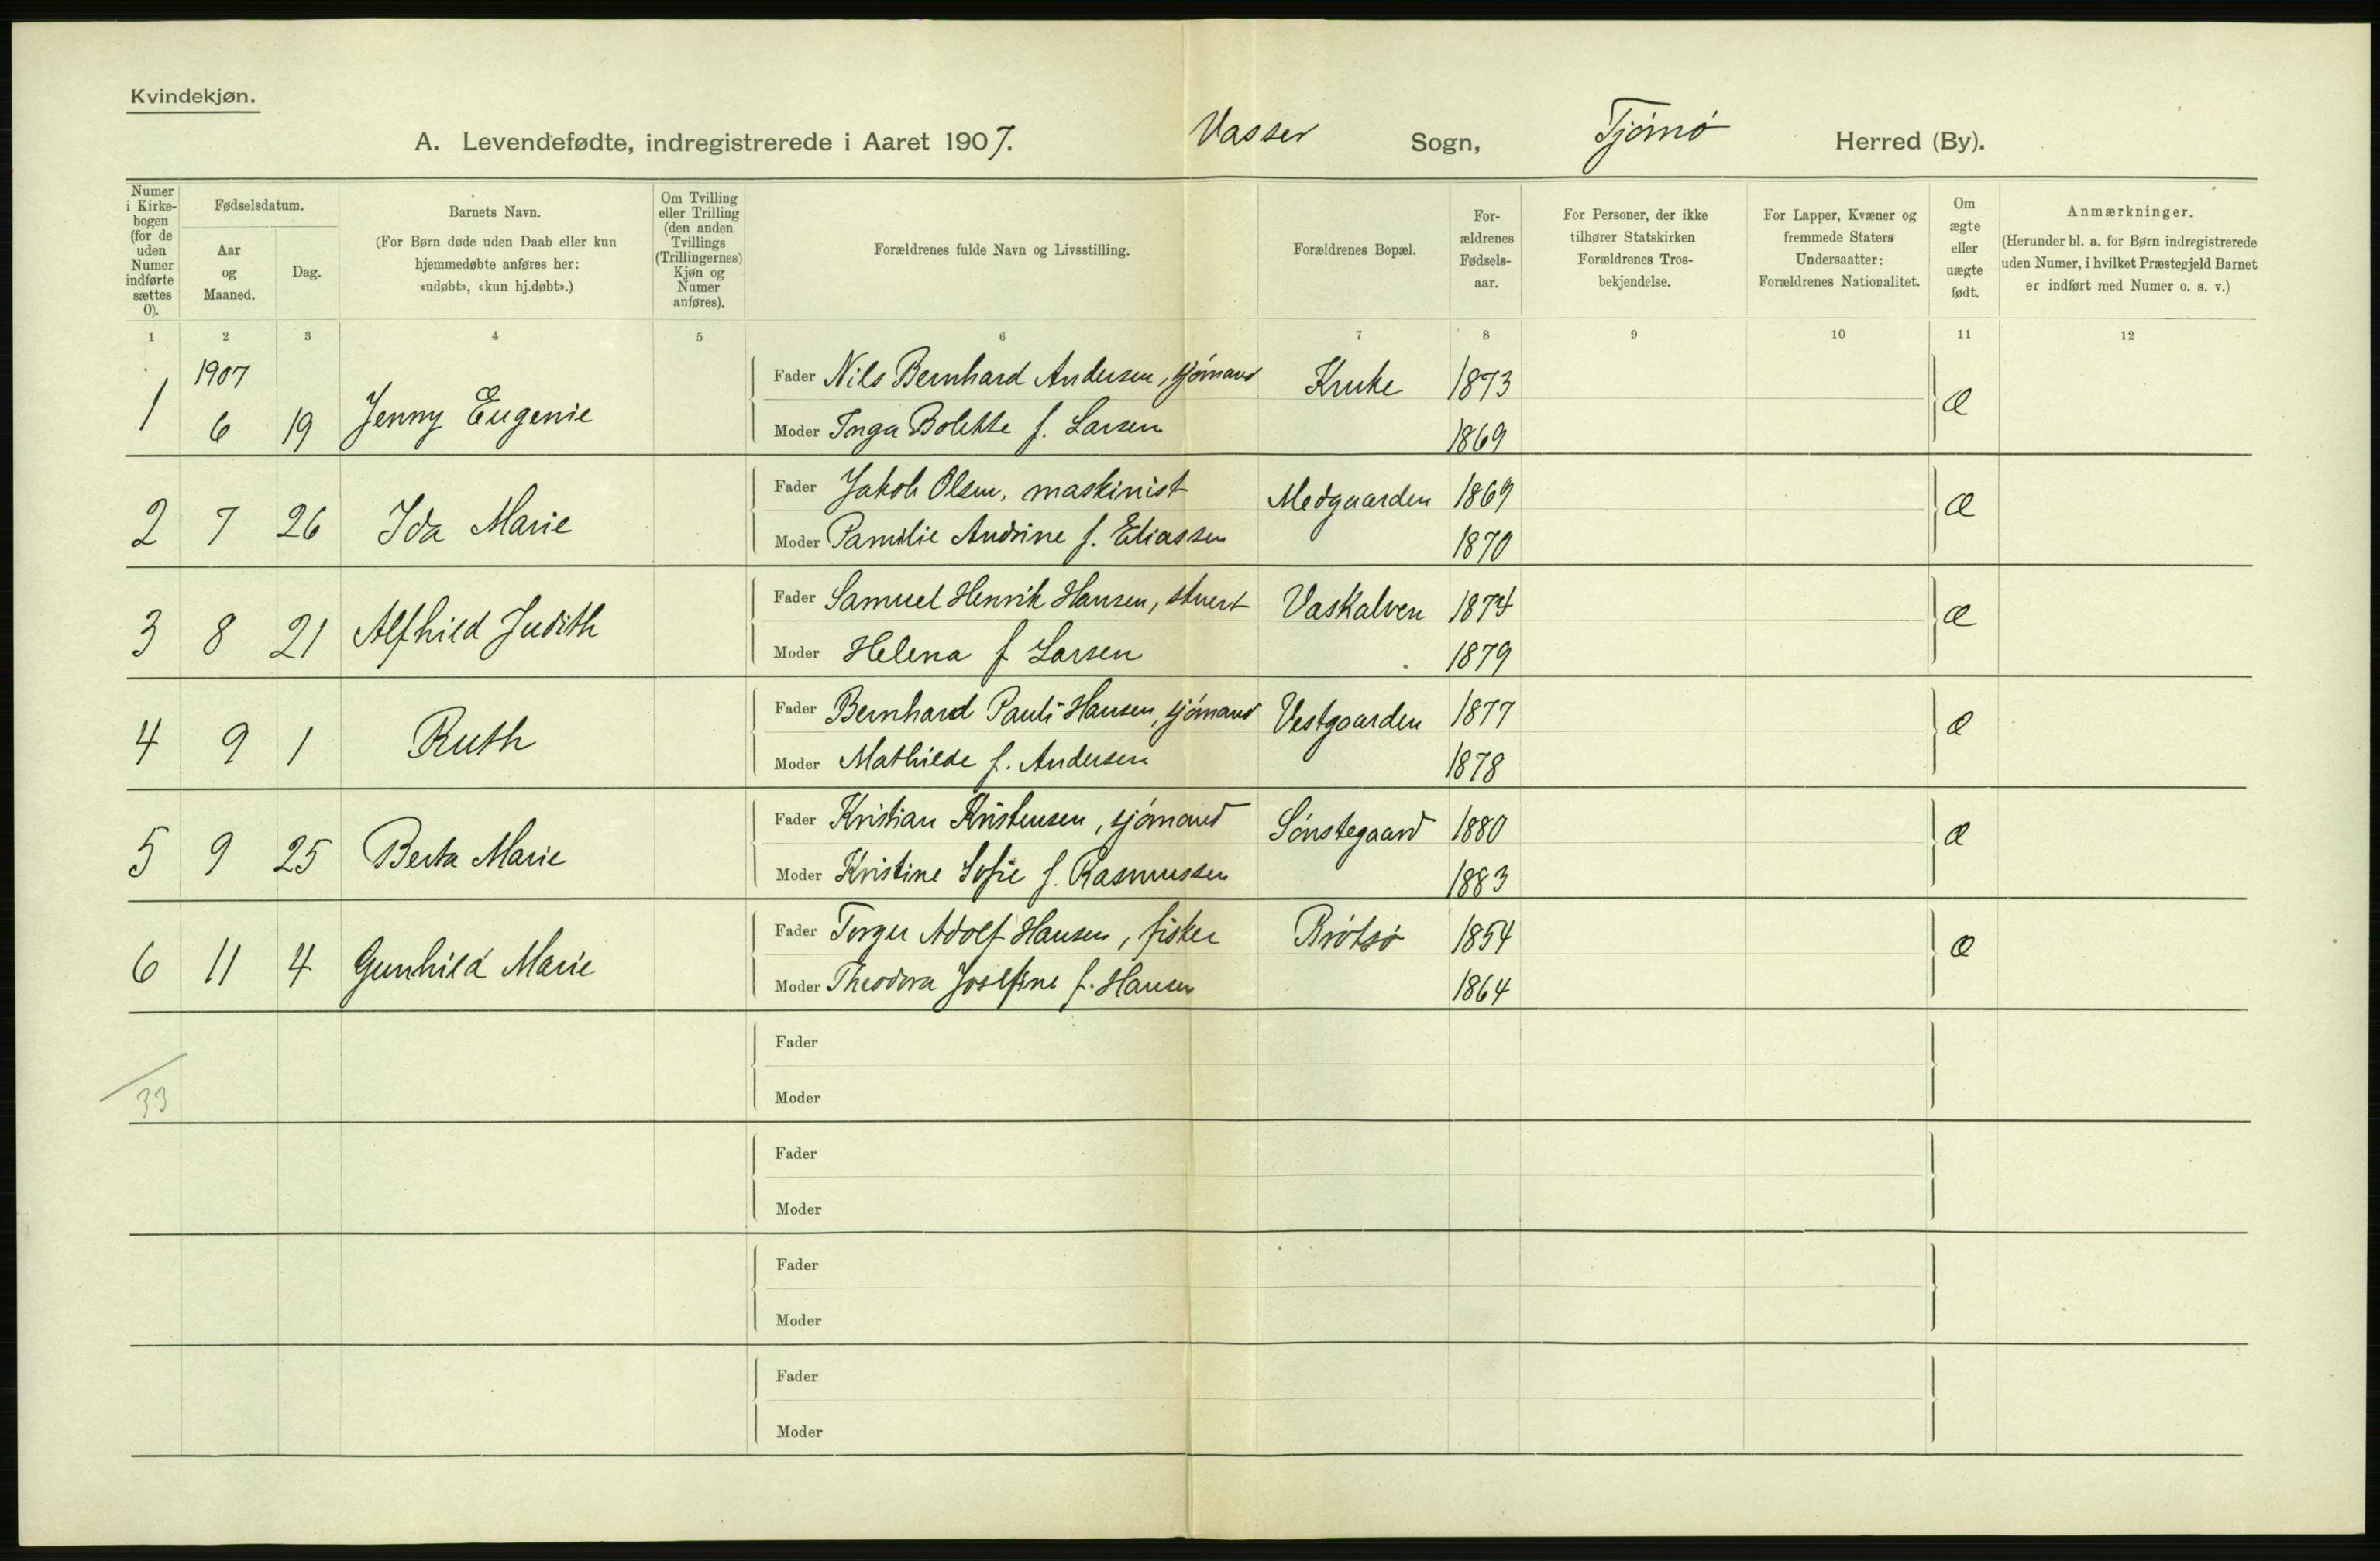 Kvindekjøn.
A. Levendefødte, indregistrerede i Aaret 1907. Vasser Sogn, Tjømø Herred (By).
Numer i Kirkebogen (for de uden Numer indførte sættes 0).
Fødselsdatum.
Aar og Maaned.
Dag.
Barnets Navn.
(For Børn døde uden Daab eller kun hjemmedøbte anføres her: «udøbt», «kun hj.døbt».)
Om Tvilling eller Trilling (den anden Tvillings (Trillingernes) Kjøn og Numer anføres).
Forældrenes fulde Navn og Livsstilling.
Forældrenes Bopæl.
For-ældrenes Fødsels-aar.
For Personer, der ikke tilhører Statskirken Forældrenes Tros-bekjendelse.
For Lapper, Kvæner og fremmede Staters Undersaatter: Forældrenes Nationalitet.
Om ægte eller uægte født.
Anmærkninger.
(Herunder bl. a. for Børn indregistrerede uden Numer, i hvilket Præstegjeld Barnet er indført med Numer o. s. v.)
1 2 3 4 5 6 7 8 9 10 11 12
1907
1 6 19 Jenny Eugenie Fader Nils Bernhard Andersen, sjømand Kruke 1873 Æ
Moder Inga Bolette f. Larsen 1869
2 7 26 Ida Marie Fader Jakob Olsen, maskinist Medgaarden 1869 Æ
Moder Pamilie Andrine f. Eliassen 1870
3 8 21 Alfhild Judith Fader Samuel Henrik Hansen, stuert Vaskalven 1874 Æ
Moder Helena f Larsen 1879
4 9 1 Ruth Fader Bernhard Pauli Hansen, sjømand Vestgaarden 1877 Æ
Moder Mathilde f. Andersen 1878
5 9 25 Berta Marie Fader Kristian Kristensen, sjømand Sønstegaard 1880 Æ
Moder Kristine Sofie f. Rasmussen 1883
6 11 4 Gunhild Marie Fader Torger Adolf Hansen, fisker Brøtsø 1854 Æ
Moder Theodora Josefine f. Hansen 1864
Fader
33 Moder
Fader
Moder
Fader
Moder
Fader
Moder